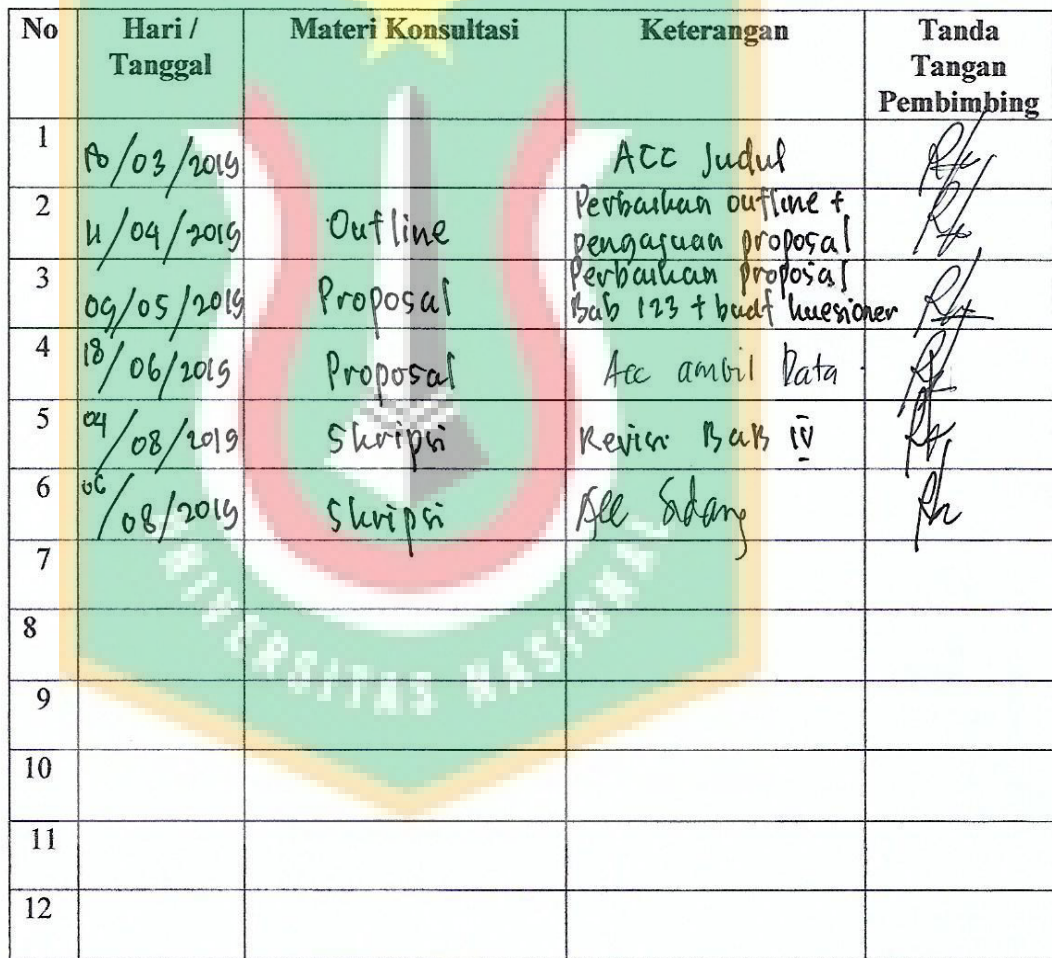 No
Hari /
Tanggal
Materi Konsultasi
Keterangan
Tanda
Tangan
Pembimbing
1
/03/2019
ACC Judul
2
11/04/2019
Outline
Perbaikan outline +
pengajuan proposal
3
09/05/2019
Proposal
Perbaikan proposal
Bab 123 + buat kuesioner
4
18/06/2019
Proposal
Acc ambil Data
5
04/08/2019
Skripsi
Revisi BAB IV
6
06/08/2019
Skripsi
Acc Sidang
7
8
9
10
11
12
UNIVERSITAS NASIONAL